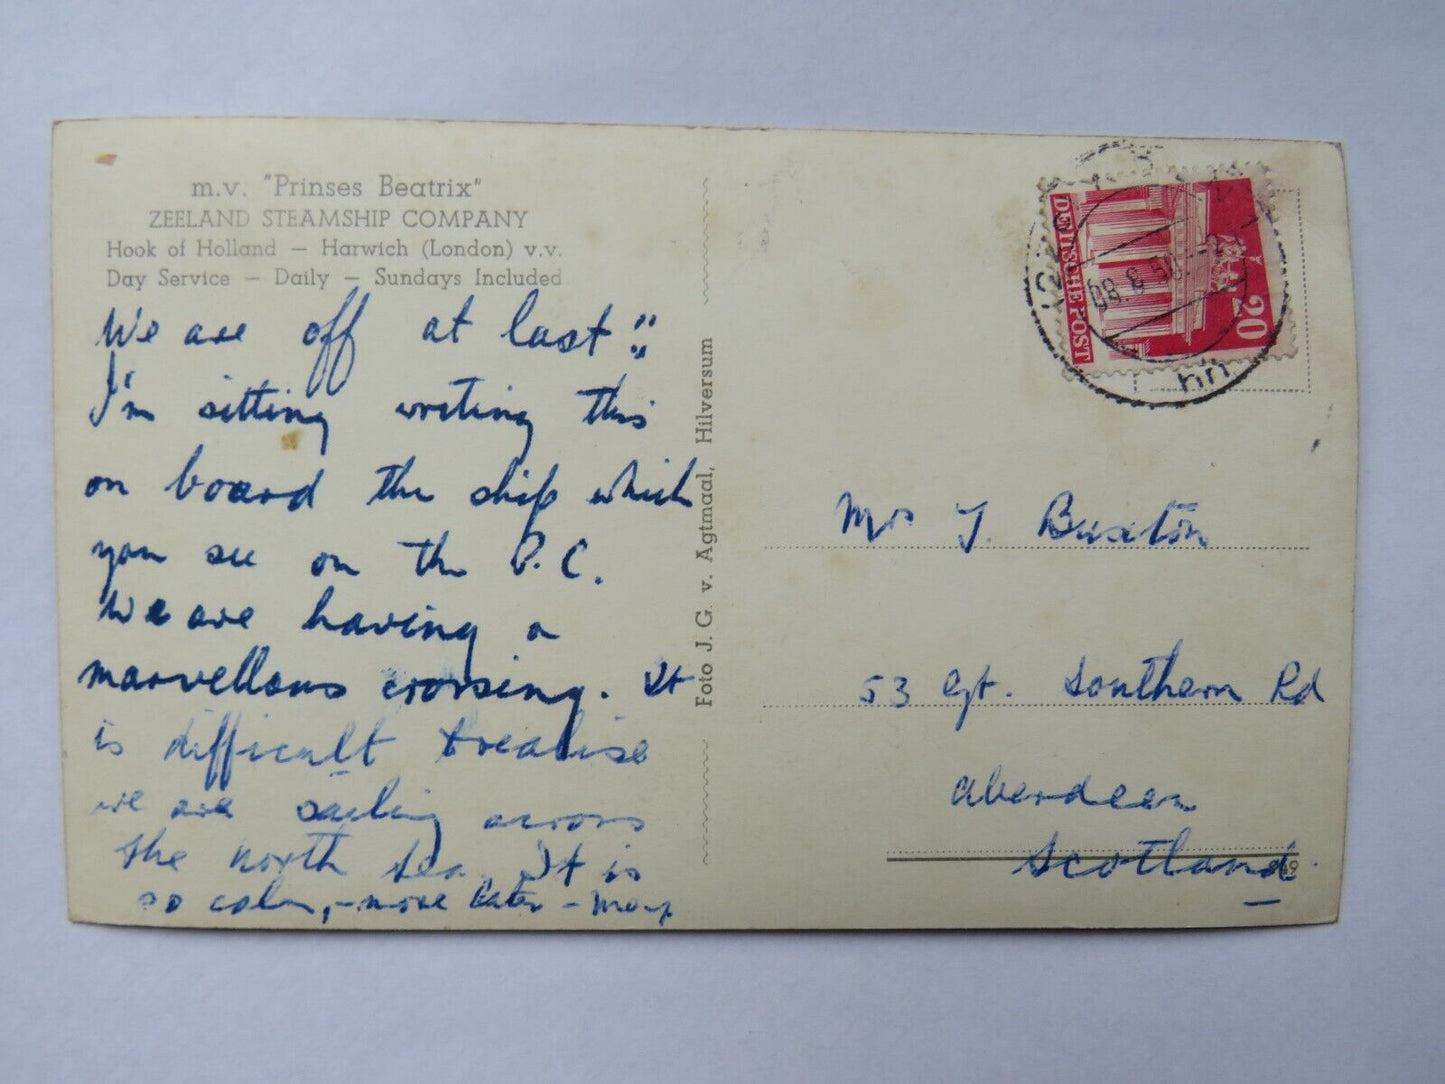 m.v. "Prinses Beatrix"
ZEELAND STEAMSHIP COMPANY
Hook of Holland — Harwich (London) v.v.
Day Service — Daily — Sundays Included
We are off at last !!
I'm sitting writing this
on board the ship which
you see on the P.C.
We are having a
marvellous crossing. It
is difficult to realise
we are sailing across
the north sea. It is
so calm, - more later - Mary
Foto J. G. v. Agtmaal, Hilversum
DEUTSCHE POST
20
08. 8. 50
Mrs J. Buxton
53 Gt. Southern Rd
Aberdeen
Scotland.